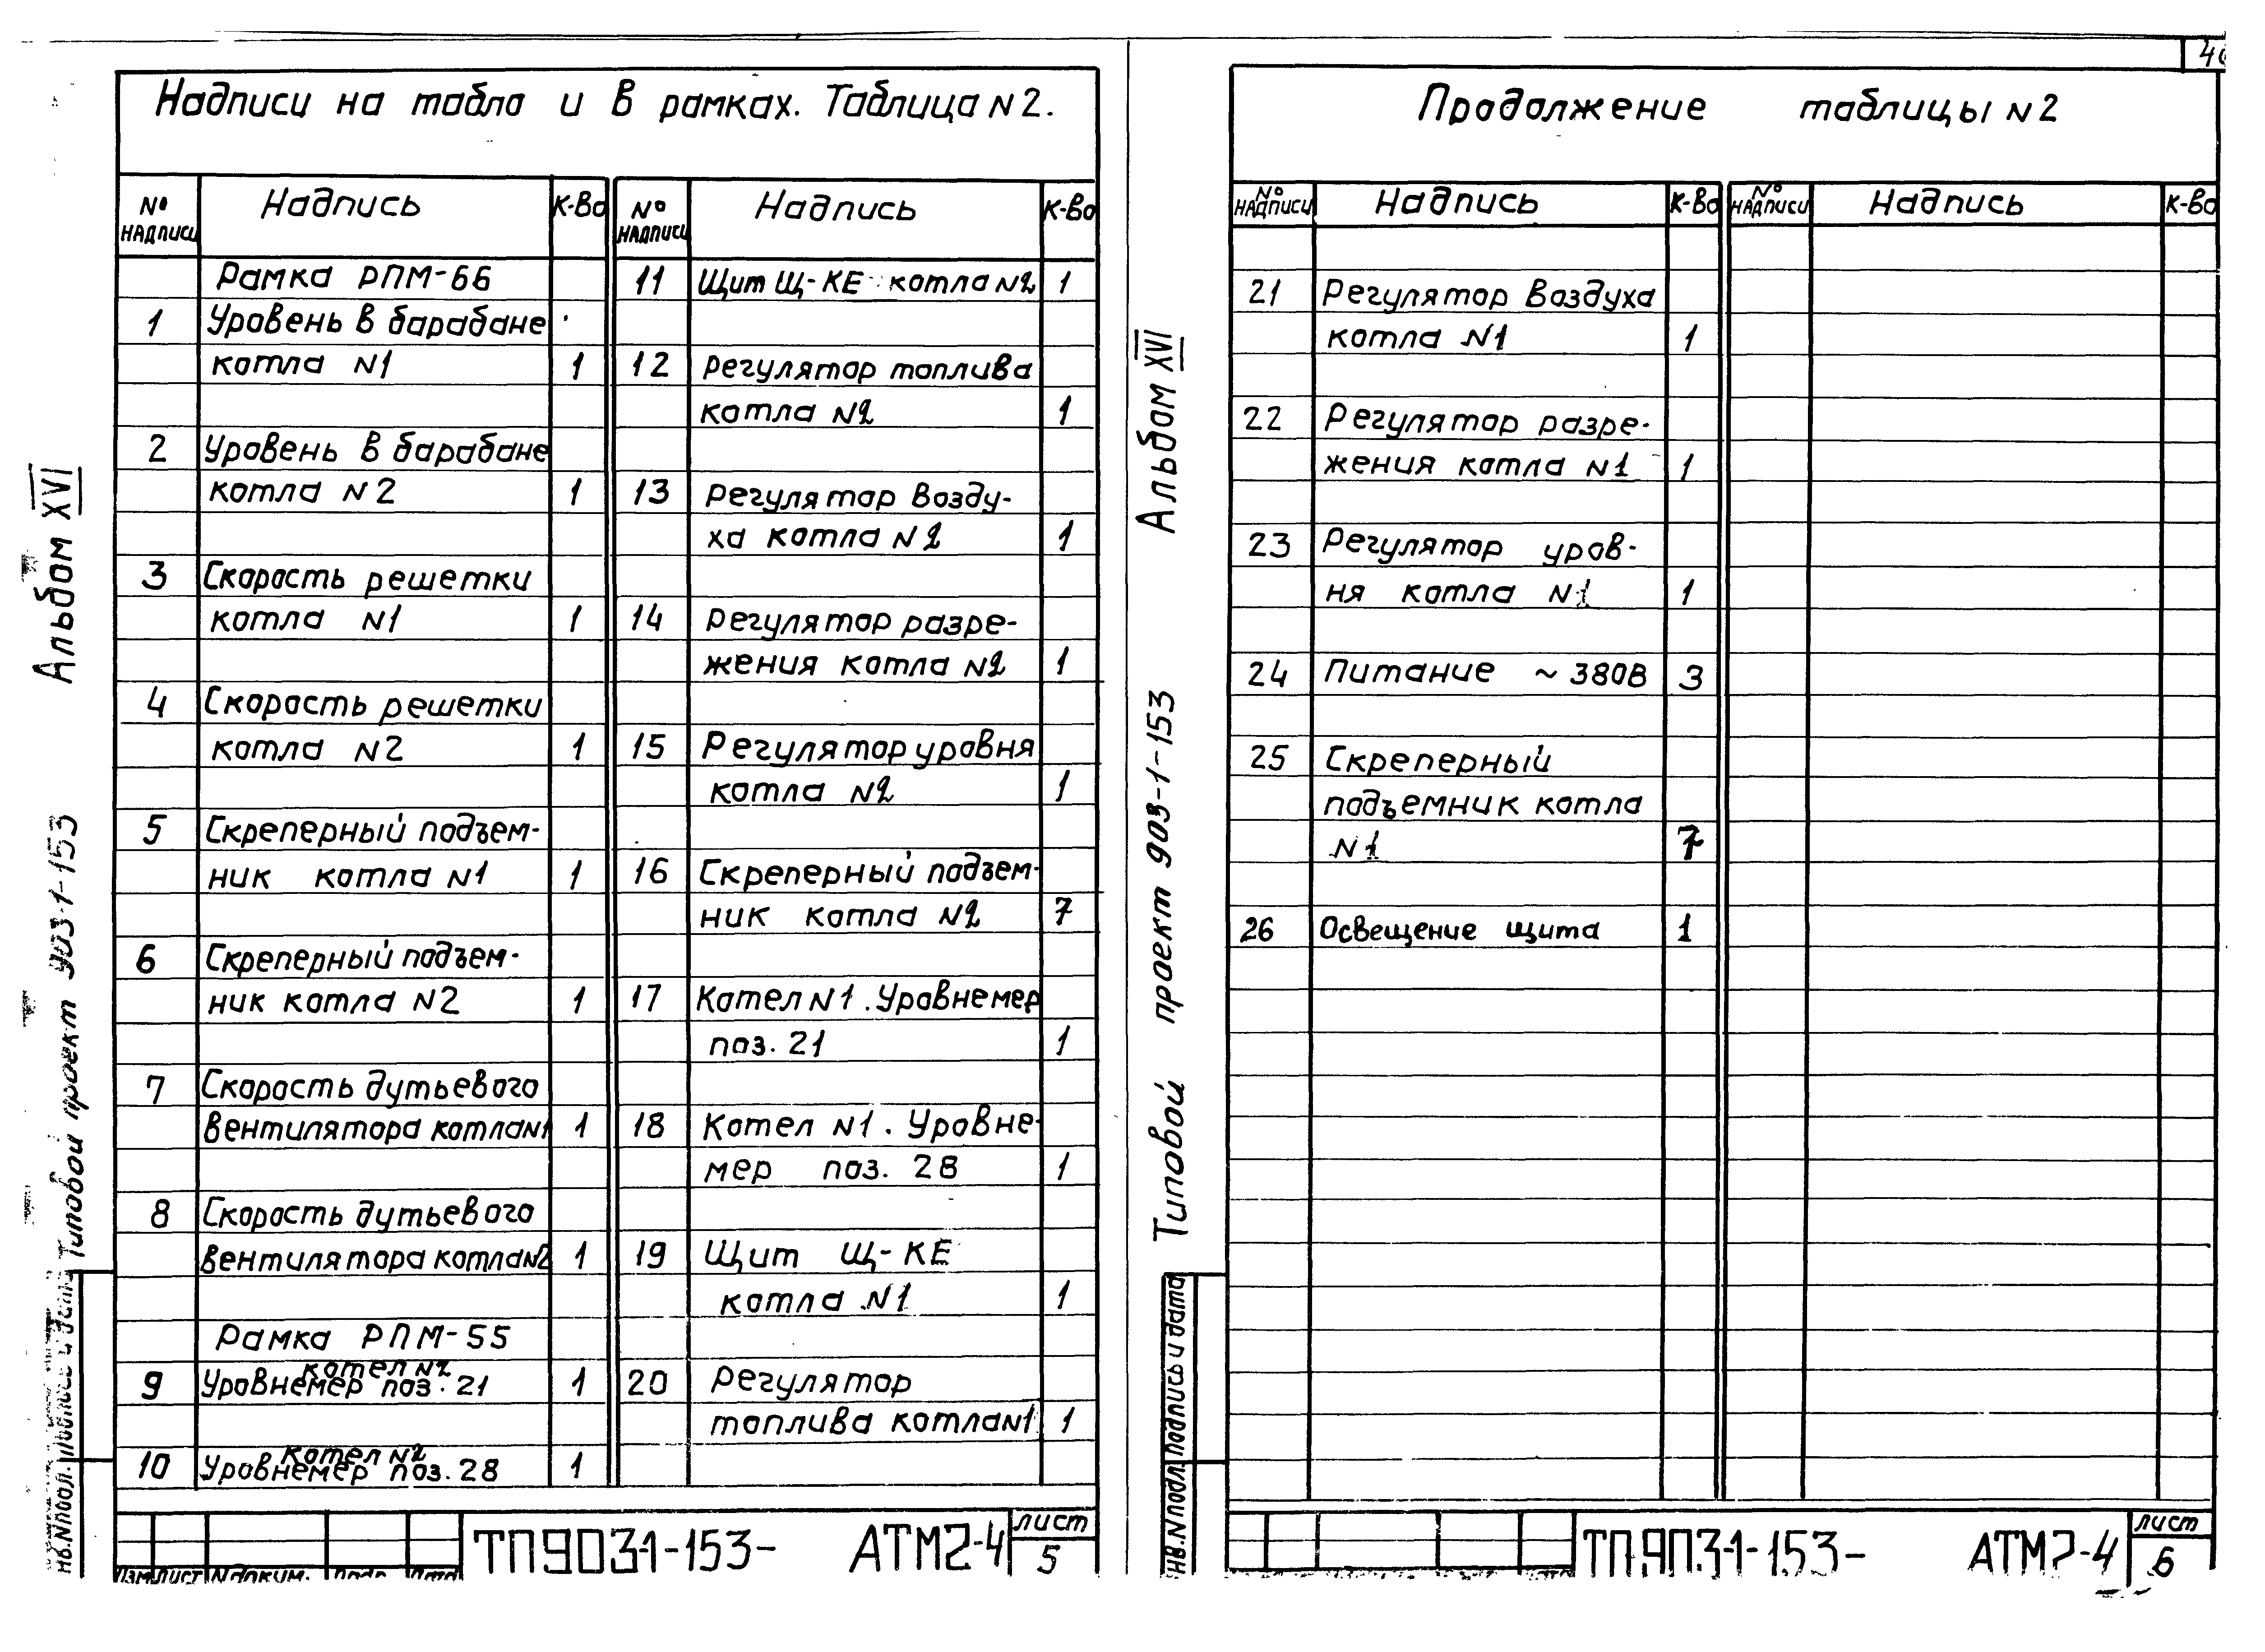 Надписи на табло и в рамках. Таблица N2.
№ надписи Надпись К-во
Рамка РПМ-66
1 Уровень в барабане
котла N1 1
2 Уровень в барабане
котла N2 1
3 Скорость решетки
котла N1 1
4 Скорость решетки
котла N2 1
5 Скреперный подъем-
ник котла N1 1
6 Скреперный подъем-
ник котла N2 1
7 Скорость дутьевого
вентилятора котла N1 1
8 Скорость дутьевого
вентилятора котла N2 1
Рамка РПМ-55
котел N2
9 Уровнемер поз. 21 1
котел N2
10 Уровнемер поз. 28 1
№ надписи Надпись К-во
11 Щит Щ-КЕ котла N2 1
12 Регулятор топлива
котла N2 1
13 Регулятор возду-
ха котла N2 1
14 Регулятор разре-
жения котла N2 1
15 Регулятор уровня
котла N2 1
16 Скреперный подъем-
ник котла N2 7
17 Котел N1. Уровнемер
поз. 21 1
18 Котел N1. Уровне-
мер поз. 28 1
19 Щит Щ-КЕ
котла N1 1
20 Регулятор
топлива котла N1 1
Альбом XVI
Типовой проект 903-1-153
Инв.Nподл. Подпись и дата
Изм Лист N докум. Подп. Дата
ТП903-1-153- АТМ2-4
Лист
5
Продолжение таблицы N2
№ надписи Надпись К-во № надписи Надпись К-во
21 Регулятор воздуха
котла N1 1
22 Регулятор разре-
жения котла N1 1
23 Регулятор уров-
ня котла N1 1
24 Питание ~380В 3
25 Скреперный
подъемник котла
N1 7
26 Освещение щита 1
Альбом XVI
Типовой проект 903-1-153
Инв.Nподл. Подпись и дата
ТП903-1-153- АТМ2-4
Лист
6